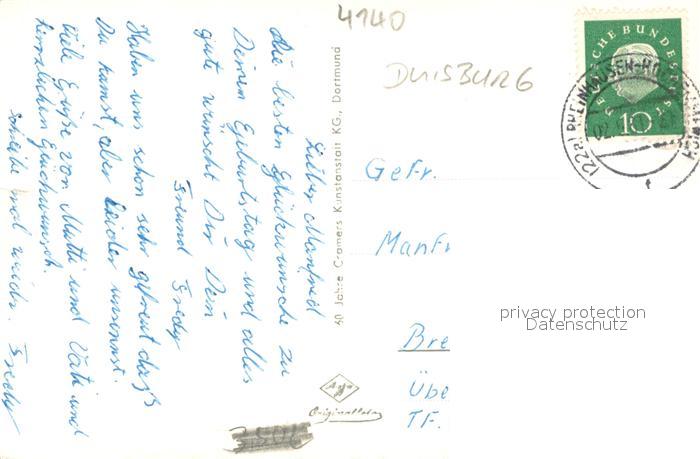 Lieber Manfred
die besten Glückwünsche zu
Deinem Geburtstag und alles
gute wünscht Dir Dein
Freund Fredy
Haben uns schon sehr gefreut daß
Du kamst, aber leider umsonst.
Viele Grüße von Mutti und Vati und
herzlichen Glückwunsch.
Schreibe mal wieder. Fredy
60 Jahre Cramers Kunstanstalt KG., Dortmund
Agfa
4140
DUISBURG
DEUTSCHE BUNDESPOST
10
(22a) RHEINHAUSEN-HO
Gefr.
Manfr
Bre
Übe
TF.
privacy protection
Datenschutz